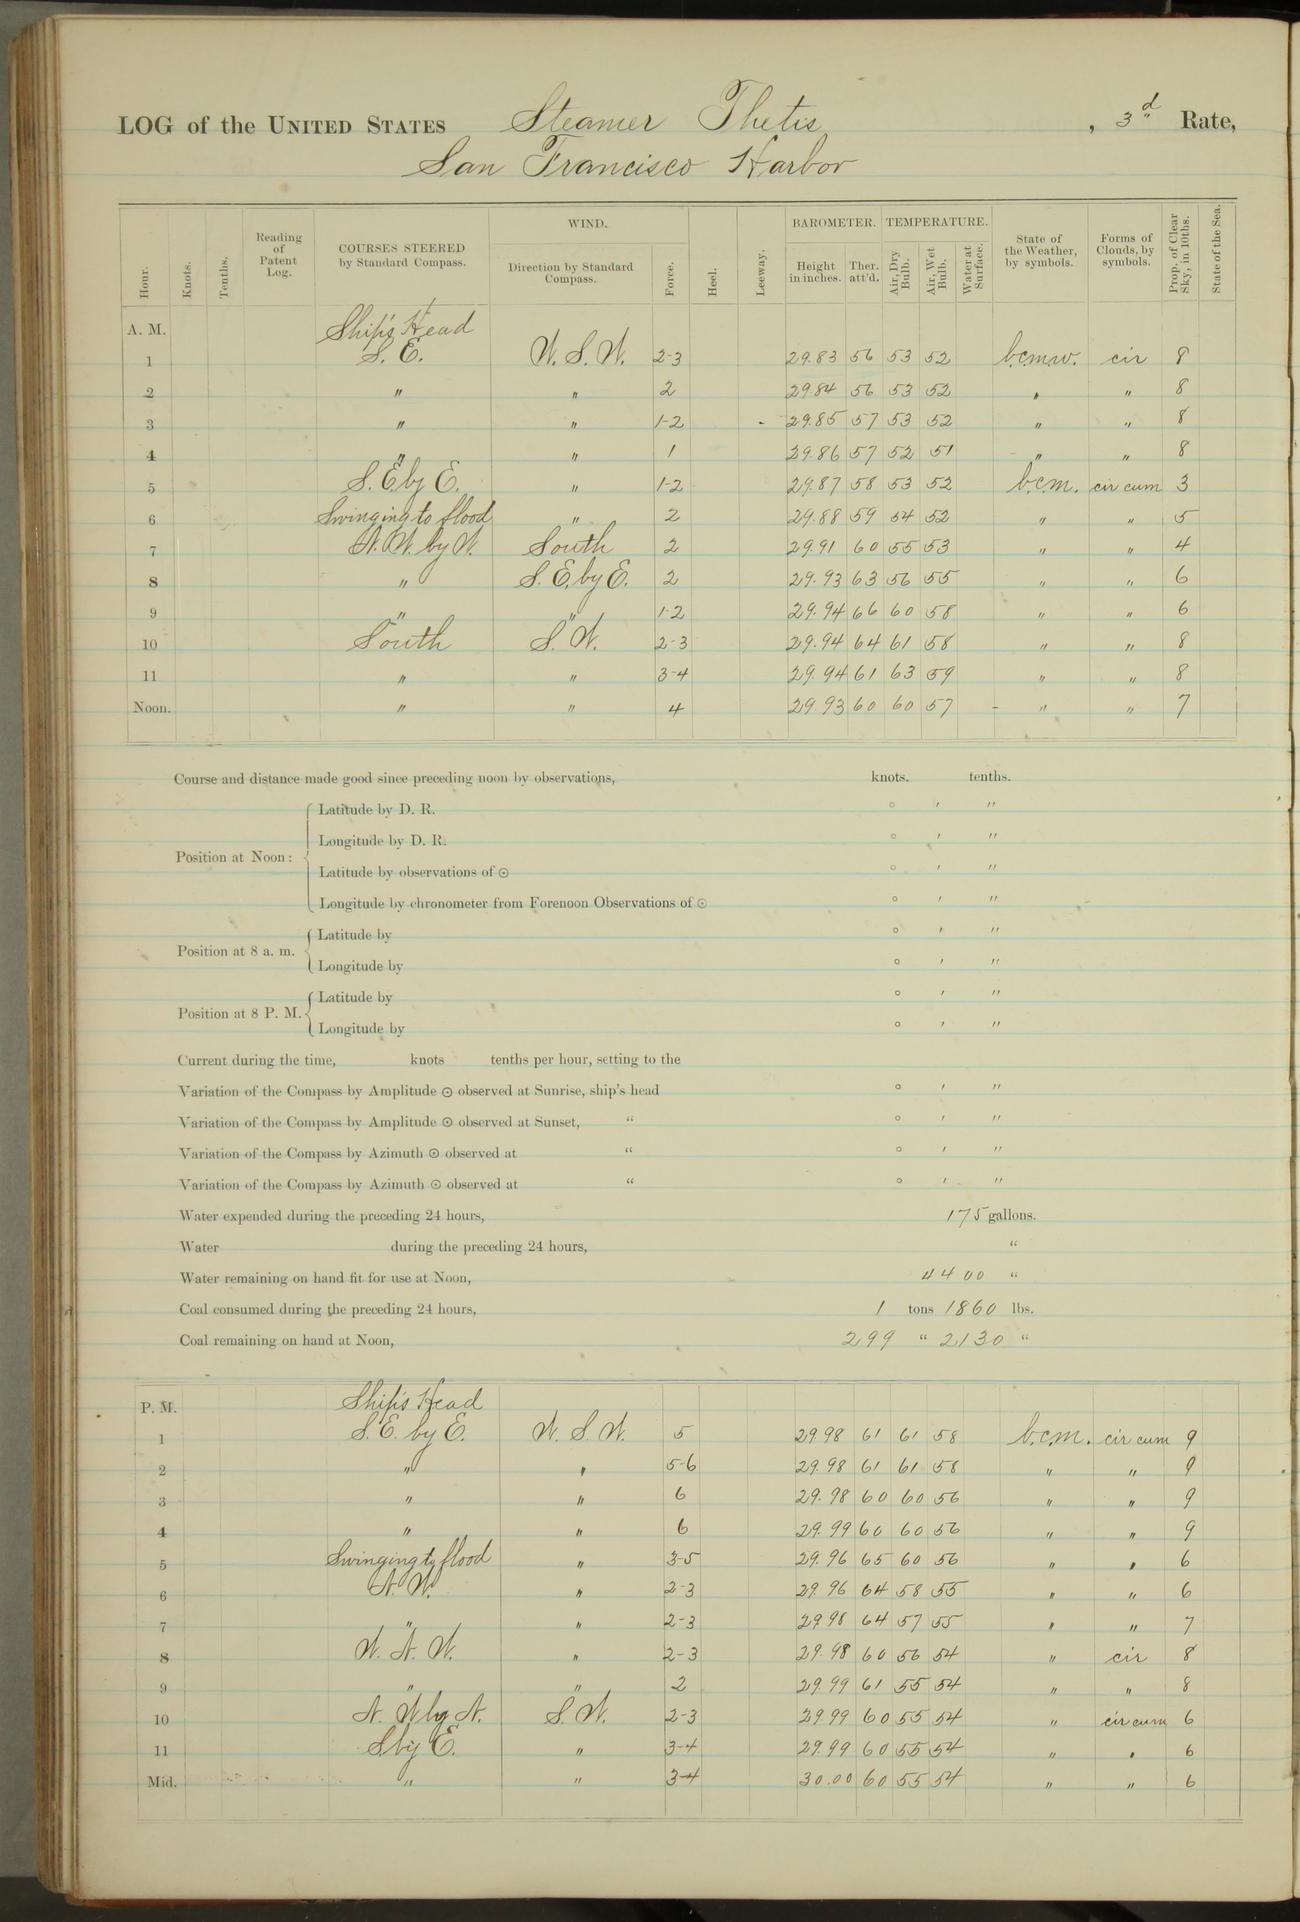 LOG of the UNITED STATES Steamer Thetis, 3d Rate,
San Francisco Harbor
Hour. Knots. Tenths. Reading of Patent Log. COURSES STEERED by Standard Compass. WIND. Direction by Standard Compass. Force. Heel. Leeway. BAROMETER. Height in inches. Ther. att'd. TEMPERATURE. Air, Dry Bulb. Air, Wet Bulb. Water at Surface. State of the Weather, by symbols. Forms of Clouds, by symbols. Prop. of Clear Sky, in 10ths. State of the Sea.
A. M. Ship's Head
1 S. E. W. S. W. 2-3 29.83 56 53 52 b.c.m.w. cir 8
2 " " 2 29.84 56 53 52 " " 8
3 " " 1-2 29.85 57 53 52 " " 8
4 " " 1 29.86 57 52 51 " " 8
5 S. E. by E. " 1-2 29.87 58 53 52 b.c.m. cir cum 3
6 Swinging to flood " 2 29.88 59 54 52 " " 5
7 N. W. by W. South 2 29.91 60 55 53 " " 4
8 " S. E. by E. 2 29.93 63 56 55 " " 6
9 " " 1-2 29.94 66 60 58 " " 6
10 South S. W. 2-3 29.94 64 61 58 " " 8
11 " " 3-4 29.94 61 63 59 " " 8
Noon. " " 4 29.93 60 60 57 " " 7
Course and distance made good since preceding noon by observations, knots. tenths.
Position at Noon:
Latitude by D. R. ° ' "
Longitude by D. R. ° ' "
Latitude by observations of ⊙ ° ' "
Longitude by chronometer from Forenoon Observations of ⊙ ° ' "
Position at 8 a. m.
Latitude by ° ' "
Longitude by ° ' "
Position at 8 P. M.
Latitude by ° ' "
Longitude by ° ' "
Current during the time, knots tenths per hour, setting to the
Variation of the Compass by Amplitude ⊙ observed at Sunrise, ship's head ° ' "
Variation of the Compass by Amplitude ⊙ observed at Sunset, " ° ' "
Variation of the Compass by Azimuth ⊙ observed at " ° ' "
Variation of the Compass by Azimuth ⊙ observed at " ° ' "
Water expended during the preceding 24 hours, 175 gallons.
Water during the preceding 24 hours, "
Water remaining on hand fit for use at Noon, 4400 "
Coal consumed during the preceding 24 hours, 1 tons 1860 lbs.
Coal remaining on hand at Noon, 299 " 2130 "
P. M. Ship's Head
1 S. E. by E. W. S. W. 5 29.98 61 61 58 b.c.m. cir cum 9
2 " " 5-6 29.98 61 61 58 " " 9
3 " " 6 29.98 60 60 56 " " 9
4 " " 6 29.99 60 60 56 " " 9
5 Swinging to flood " 3-5 29.96 65 60 56 " " 6
6 N. W. " 2-3 29.96 64 58 55 " " 6
7 " " 2-3 29.98 64 57 55 " " 7
8 W. N. W. " 2-3 29.98 60 56 54 " cir 8
9 " " 2 29.99 61 55 54 " " 8
10 N. W by N. S. W. 2-3 29.99 60 55 54 " cir cum 6
11 S by E. " 3-4 29.99 60 55 54 " " 6
Mid. " " 3-4 30.00 60 55 54 " " 6